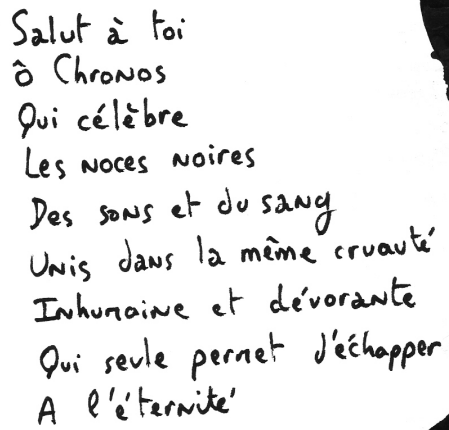 Salut à toi
ô Chronos
Qui célèbre
Les noces noires
Des sons et du sang
Unis dans la même cruauté
Inhumaine et dévorante
Qui seule permet d'échapper
A l'éternité